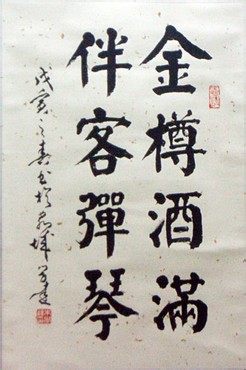 金樽酒滿
伴客彈琴
戊寅之春書於